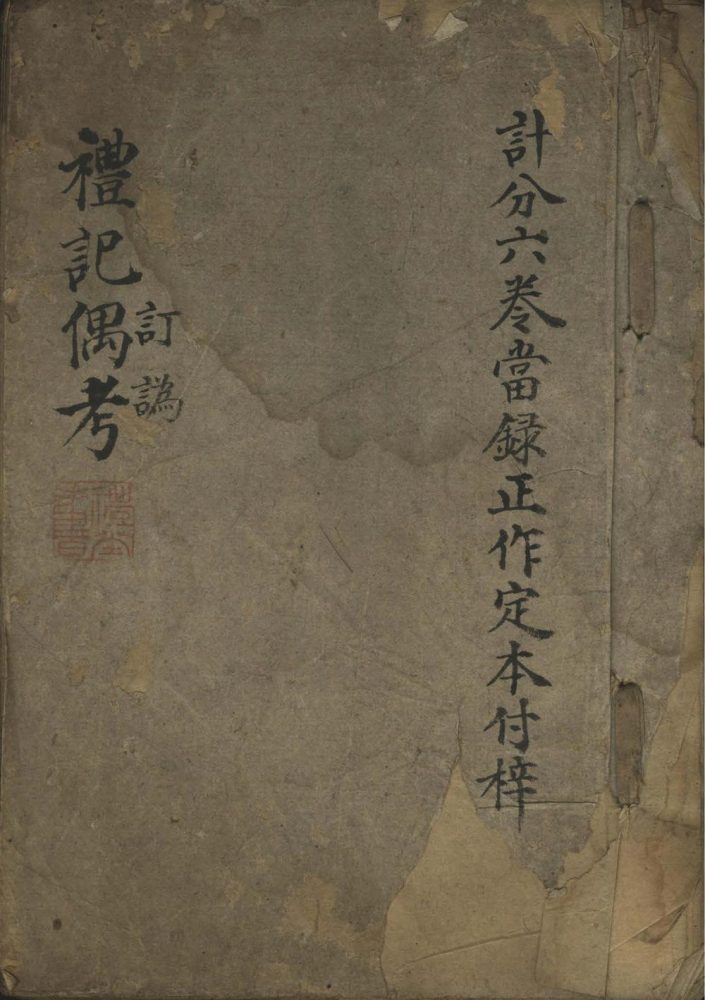 計分六卷當録正作定本付梓
禮記偶考
訂譌